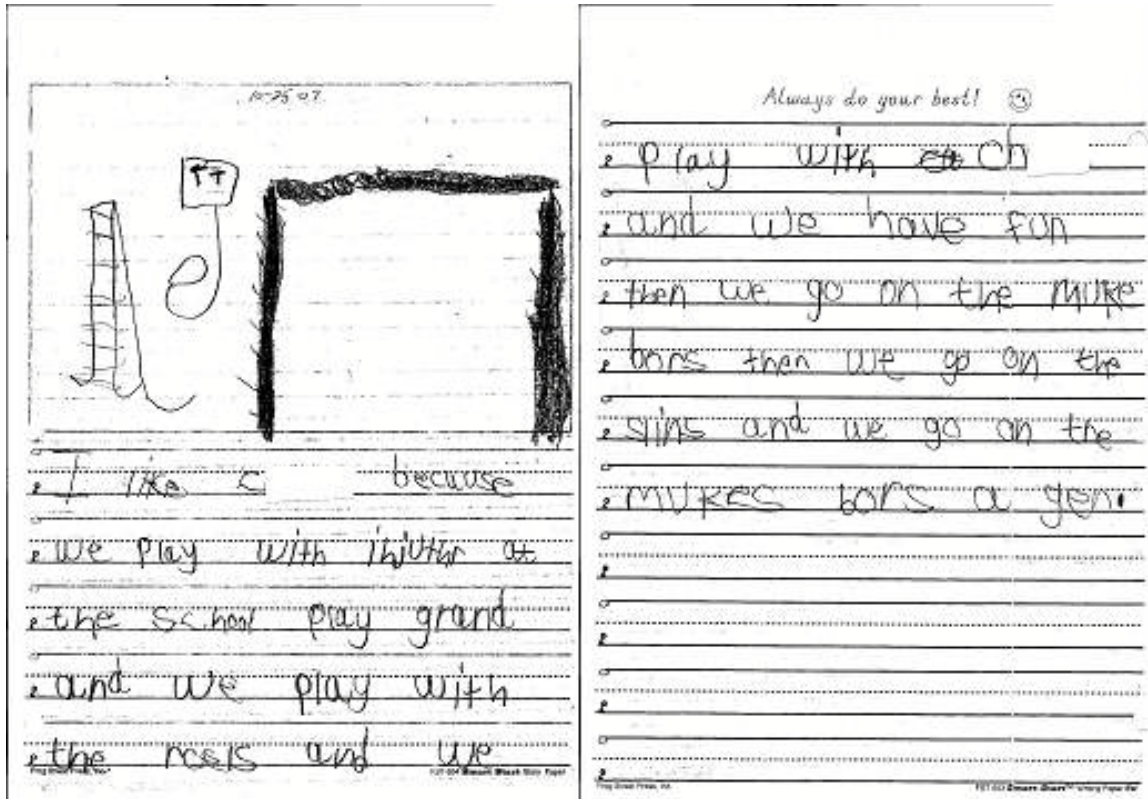 10-25 07
I like c because
we play with ihiuthr at
the school play grand
and we play with
the rcels and we
Frog Street Press, Inc.
FST-604 Smart Start Story Paper
Always do your best!
play with ch
and we have fun
then we go on the muke
bors then we go on the
slins and we go on the
mukes bors a gen.
Frog Street Press, Inc.
Smart Start™ Writing Paper